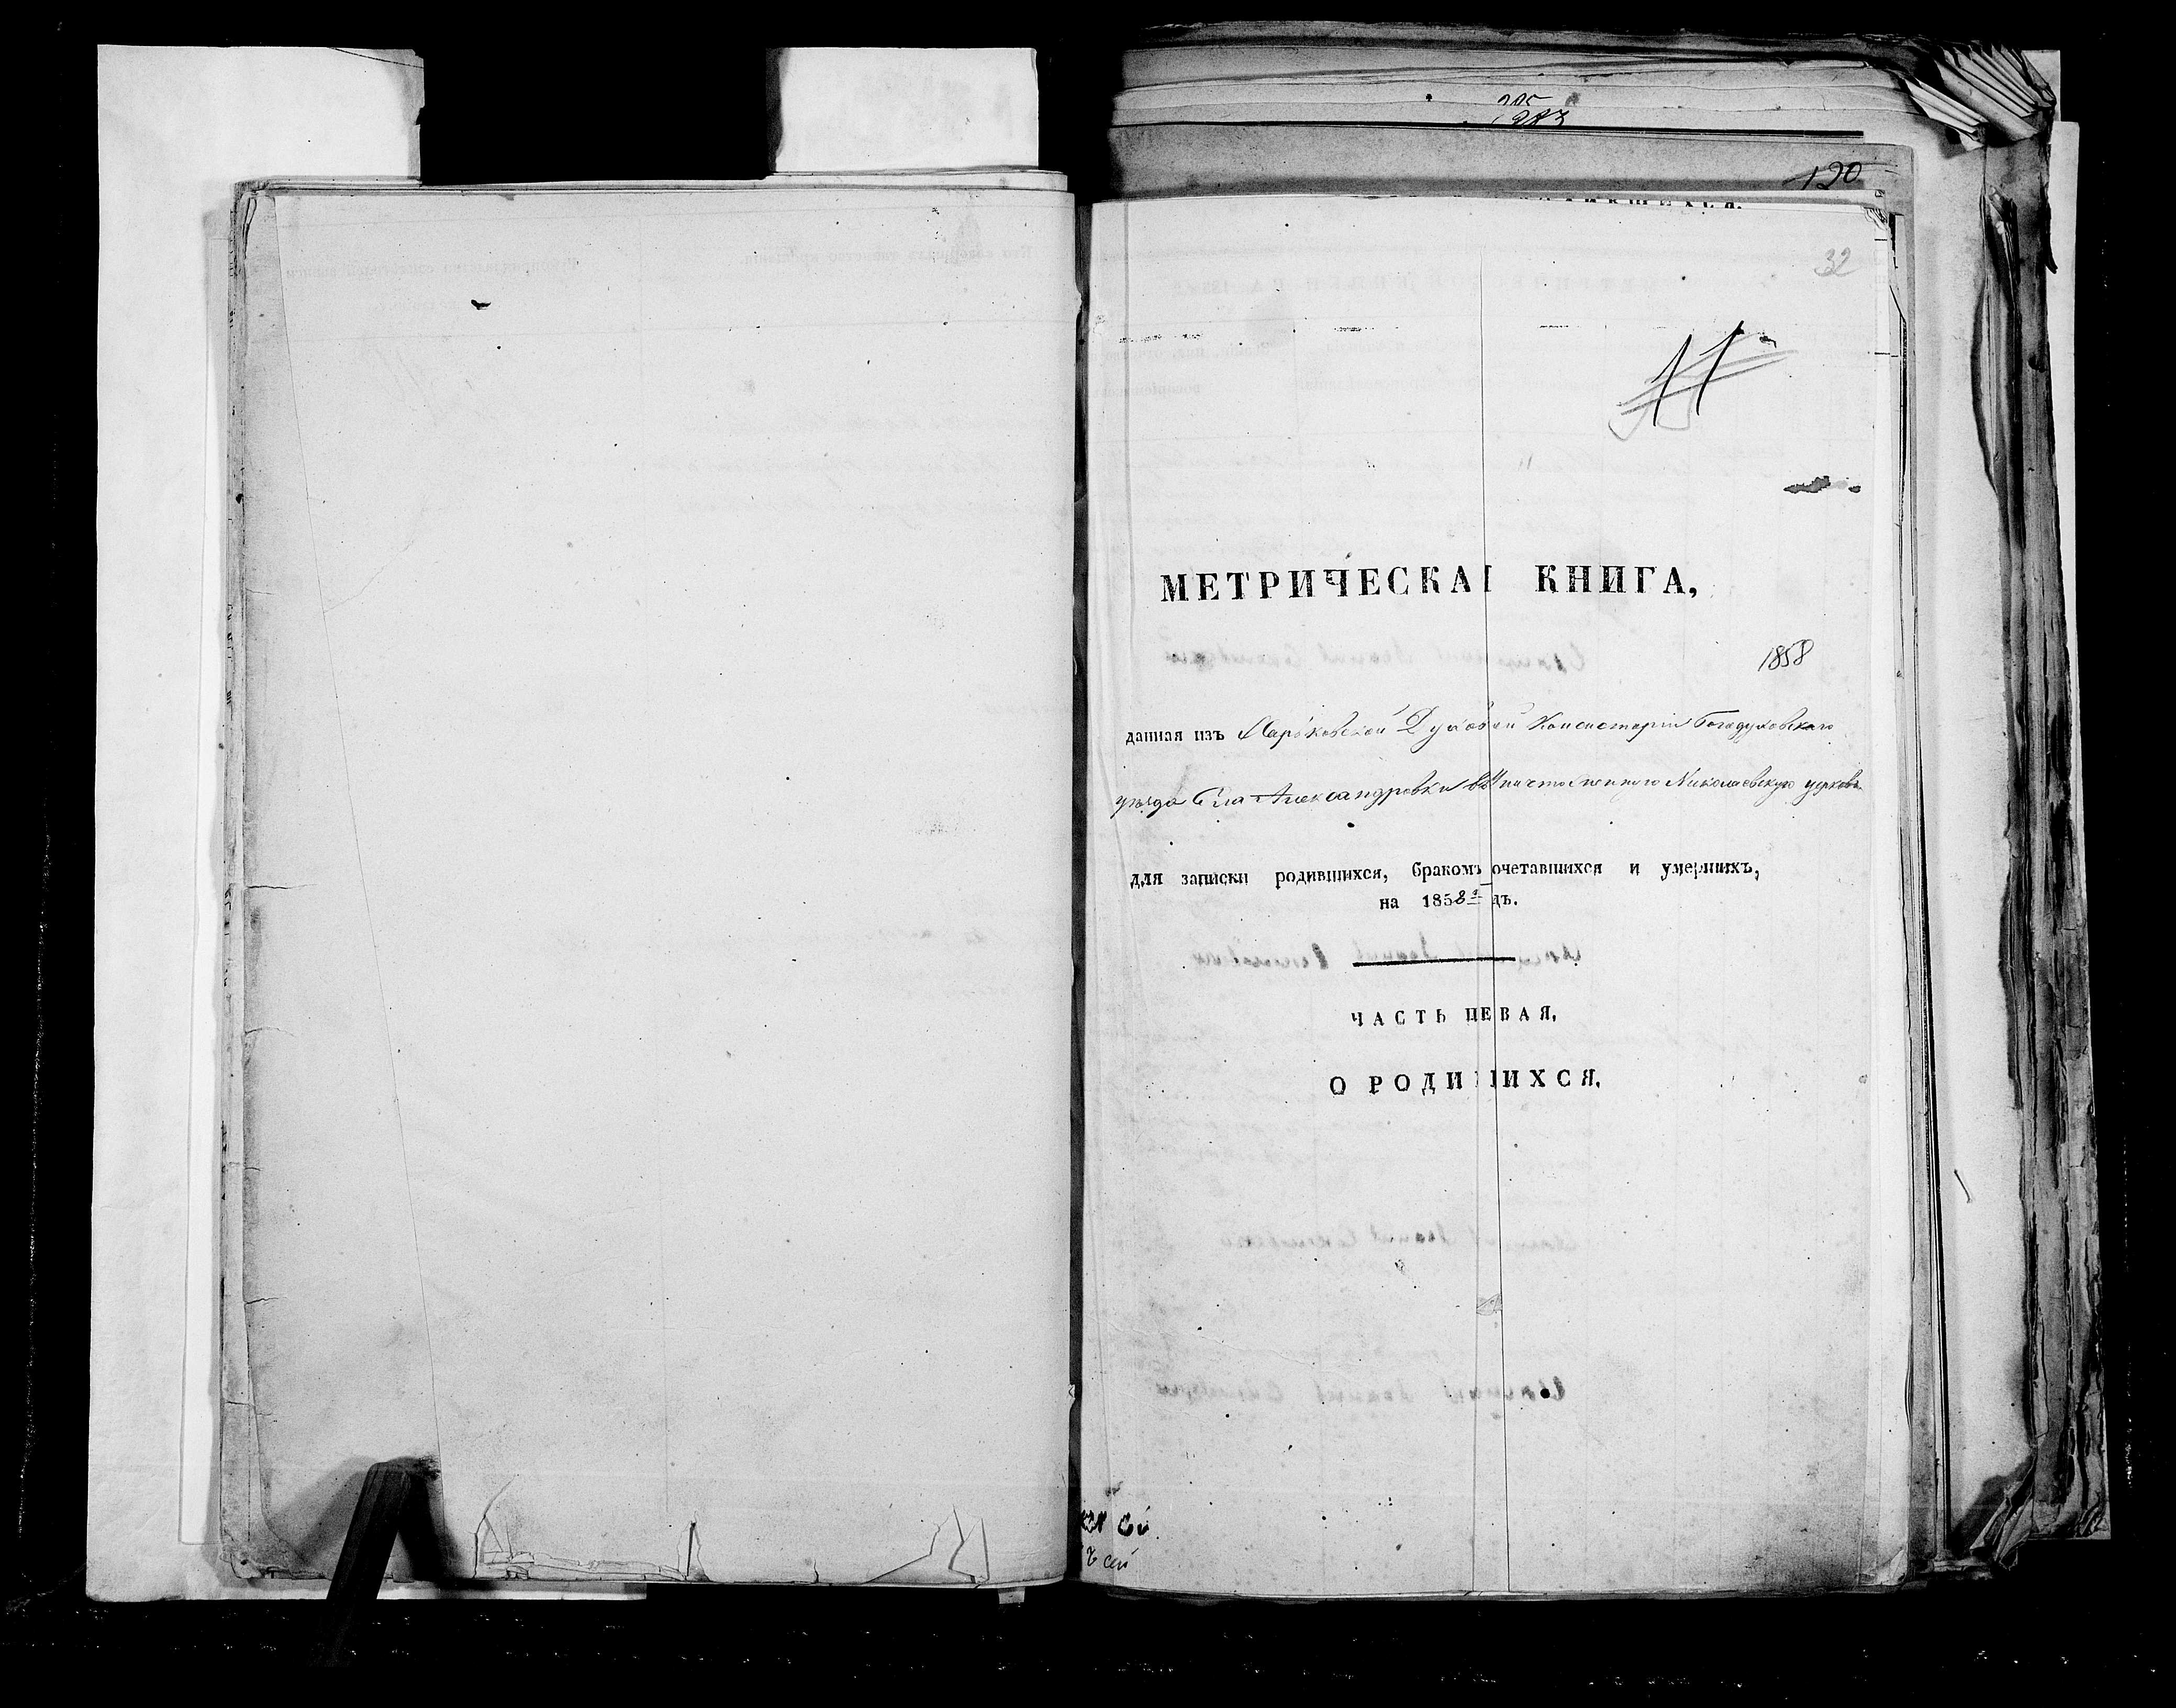 120
32
11
МЕТРИЧЕСКАЯ КНИГА,
1858
данная изъ Харьковской Духовной Консисторіи Богодуховского
уѣзда Села Александровки въ Николаевскую церковь
для записки родившихся, бракомъ сочетавшихся и умершихъ,
на 1858 годъ.
ЧАСТЬ ПЕРВАЯ,
О РОДИВШИХСЯ.